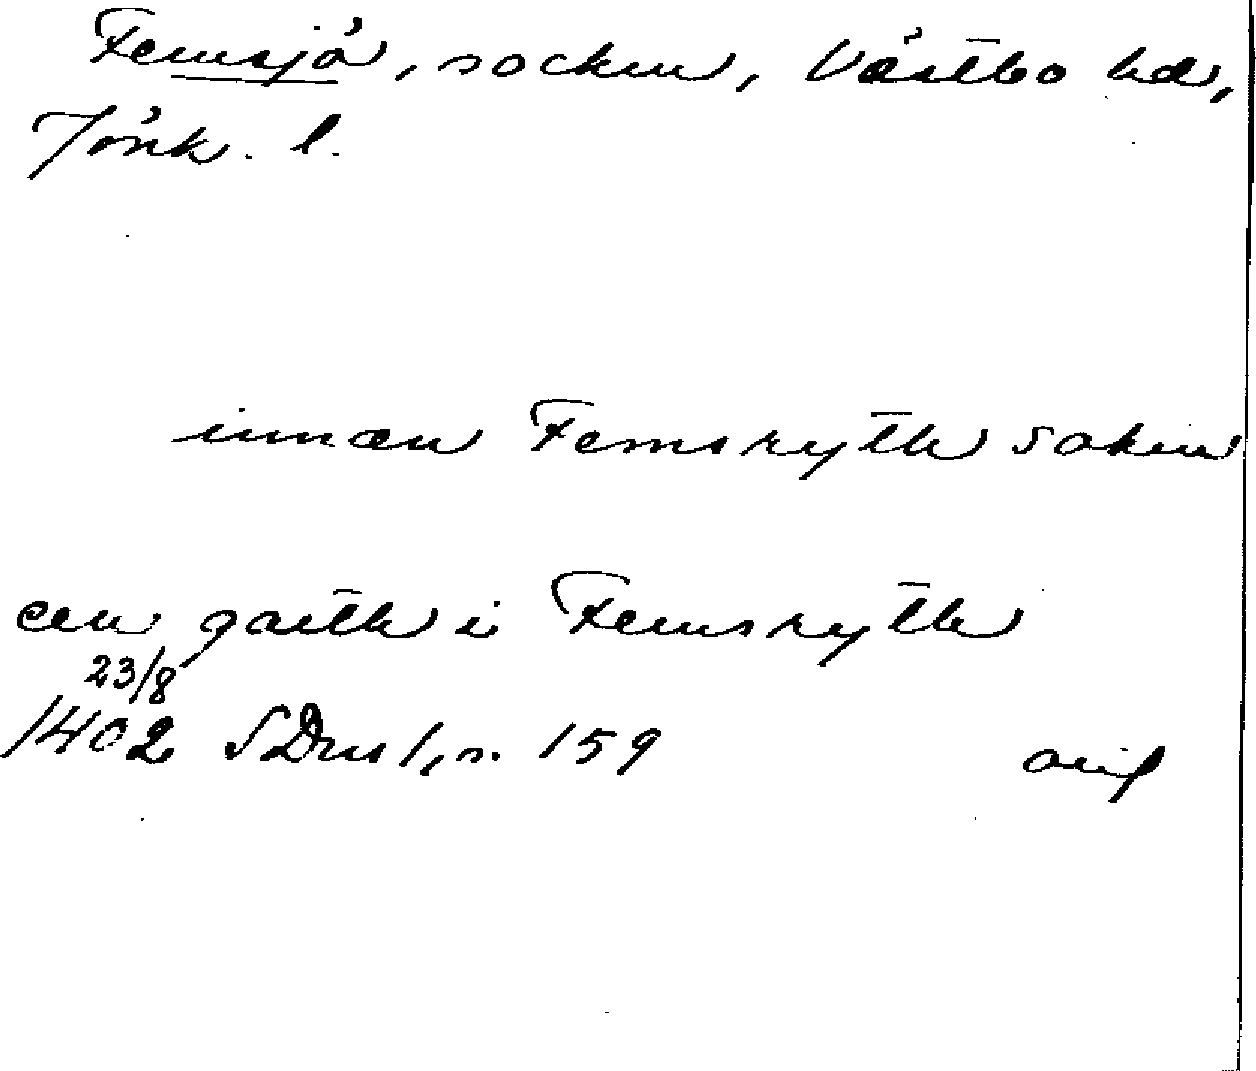 Femsjö, socken, Västbo hd,
Jönk. l.
innæn Femsryth sokin
een garth i Femsryth
23/8
1402 SDns 1, s. 159
orig